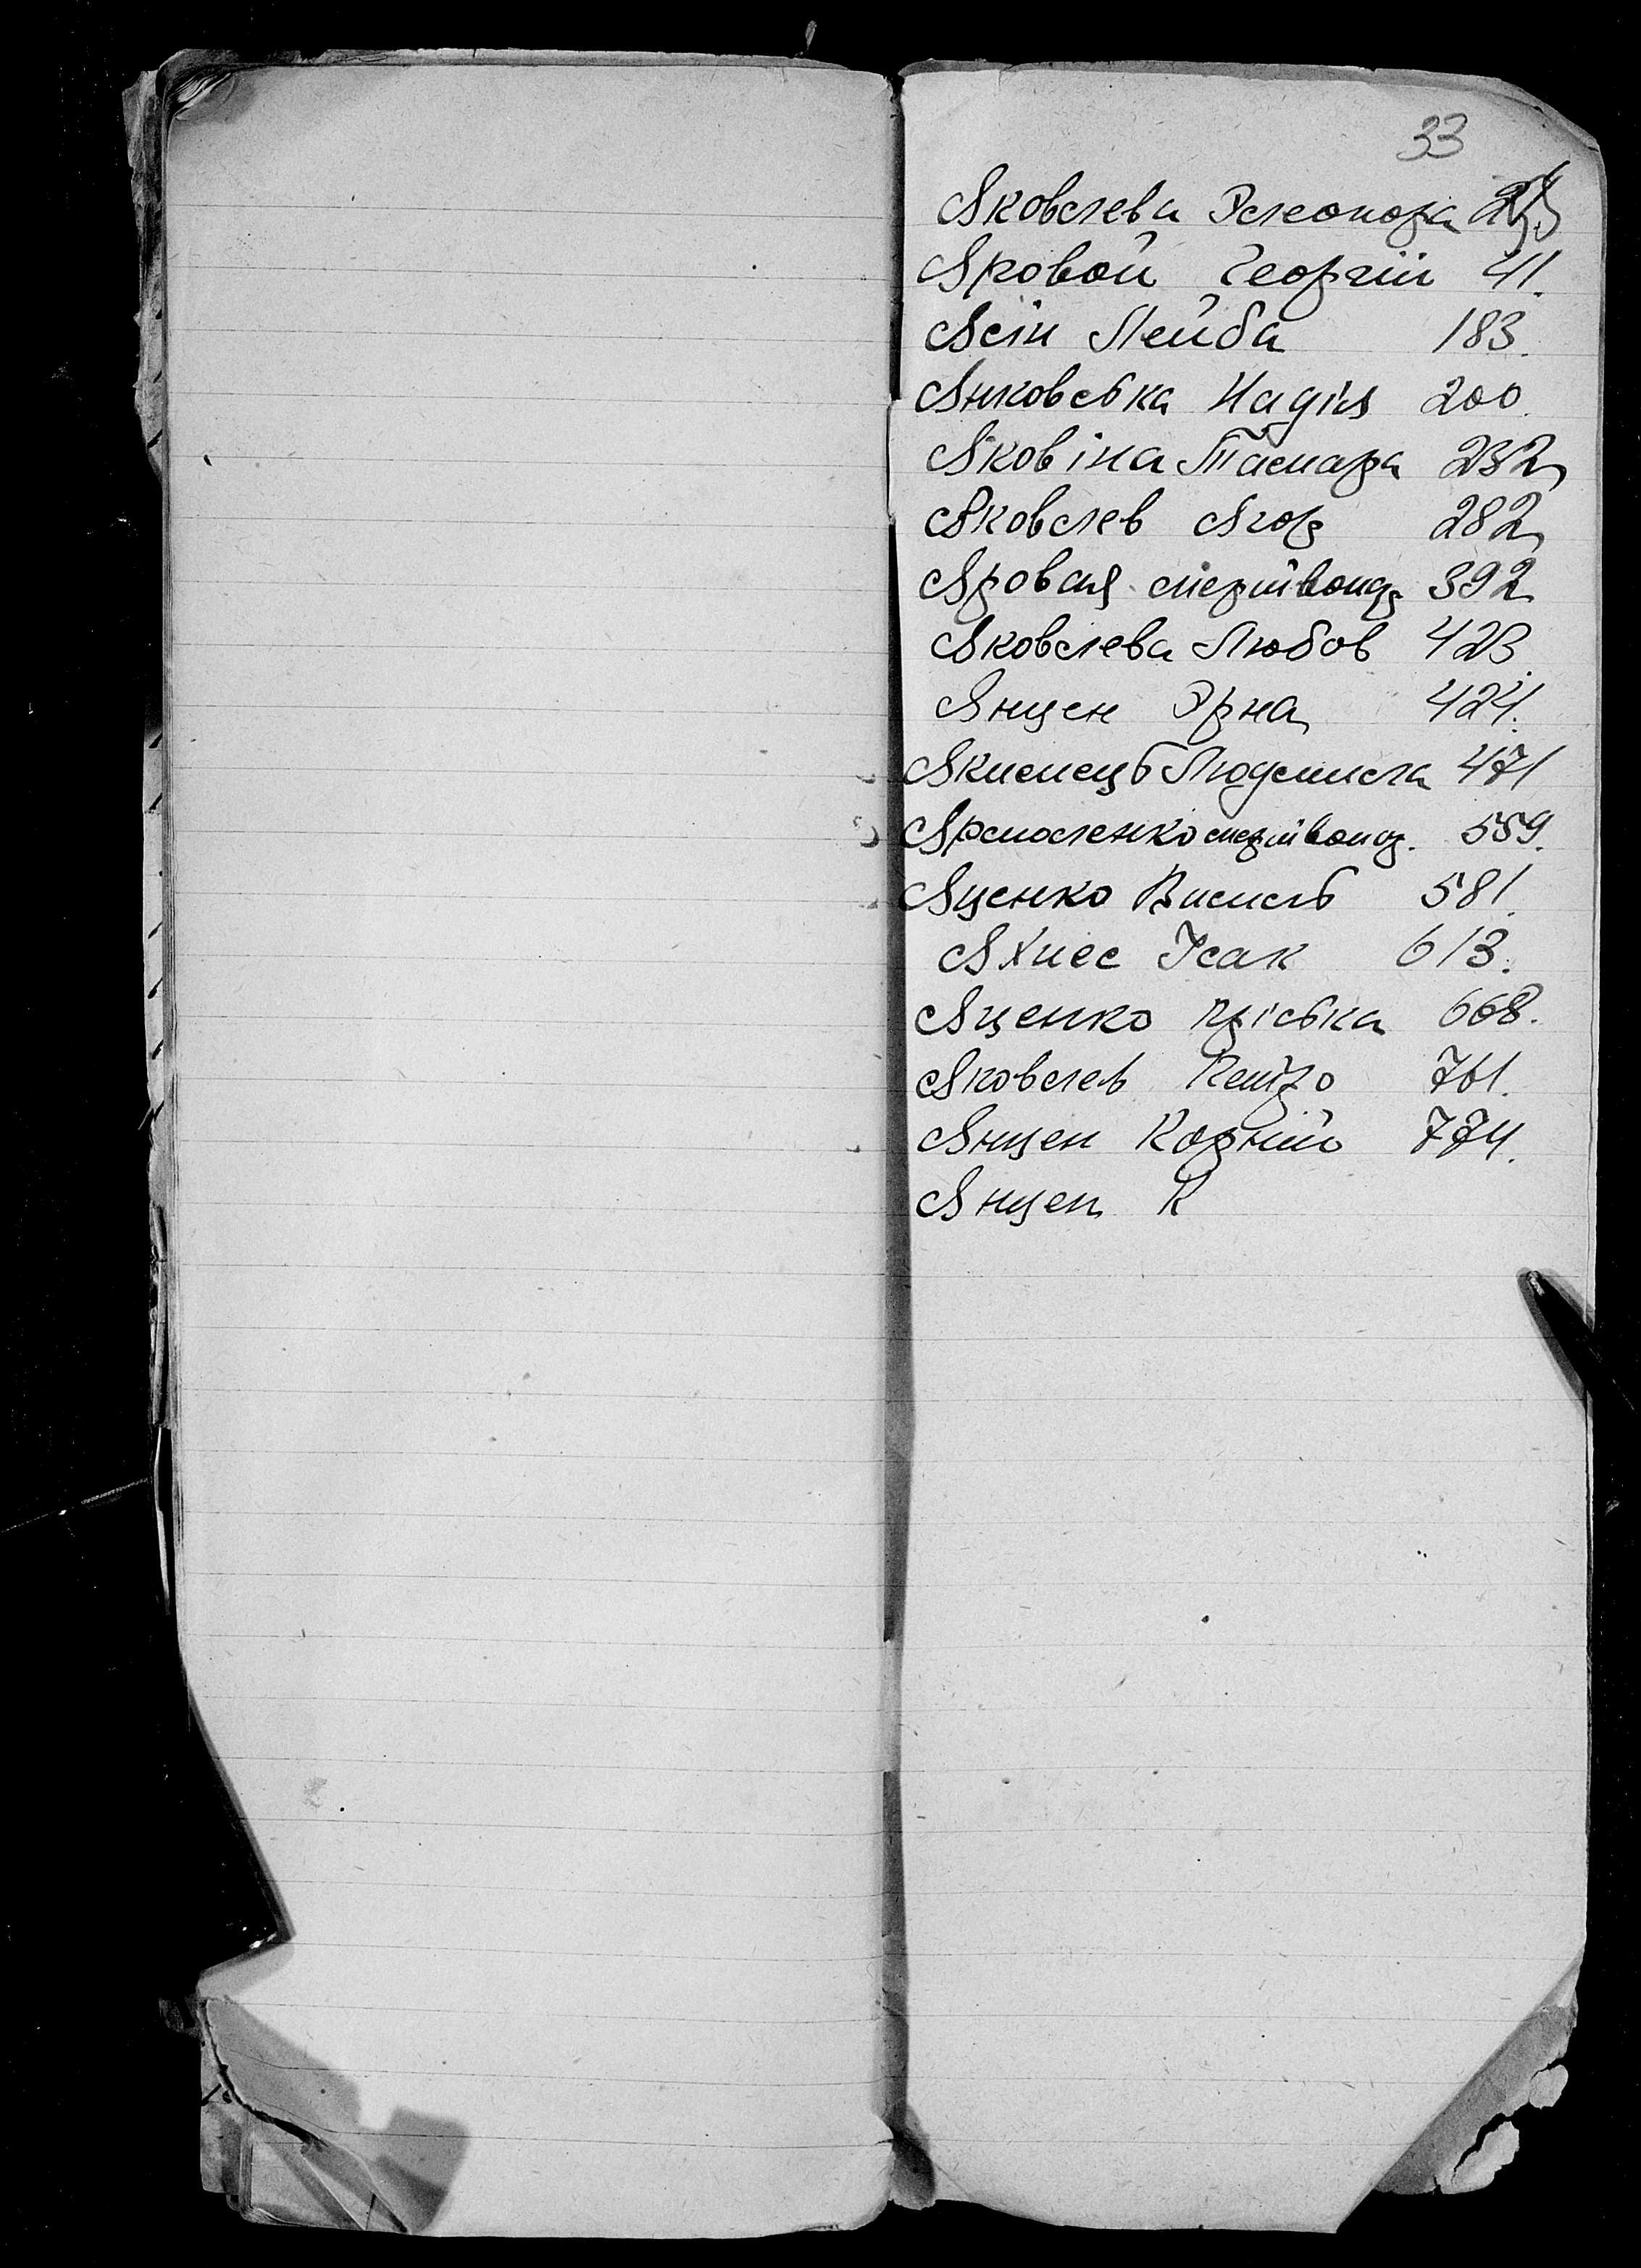 33
Яковлева Элеонора
Яровой Георгій 41.
Ясін Лейба 183.
Янковська Надія 200.
Яковіна Тамара 232
Яковлев Ягор 282
Яровая мертвонар 392
Яковлева Любов 423.
Янцен Эрна 424.
Якимець Людмила 471
Ярмоленко мертвонар. 559.
Яценко Василь 581.
Яхнес Ісак 613.
Яценко Пріська 668.
Яковлев Петро 761.
Янцен Корній 774.
Янцен К